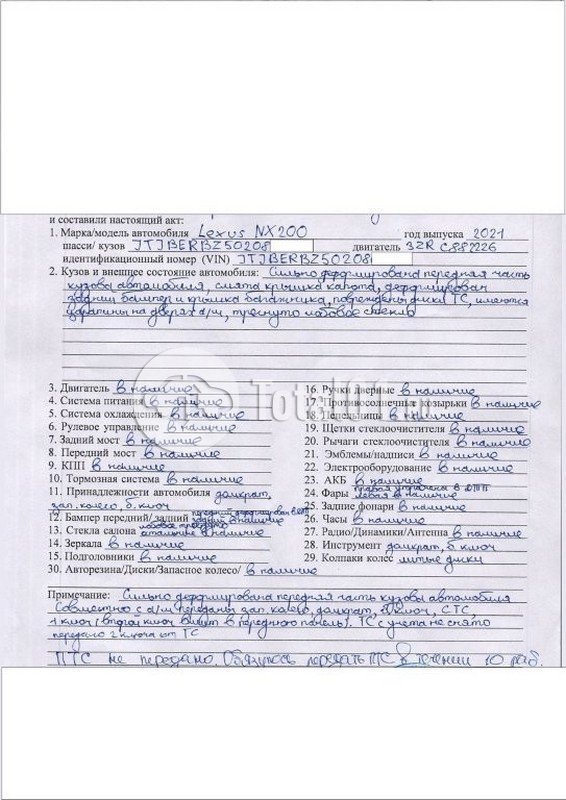 и составили настоящий акт:
1. Марка/модель автомобиля Lexus NX200 год выпуска 2021
шасси/ кузов JTJBERBZ50208 двигатель 3ZR C882226
идентификационный номер (VIN) JTJBERBZ50208
2. Кузов и внешнее состояние автомобиля: Сильно деффмирована передняя часть
кузова автомобиля, смята крышка капота, деффмирован
задний бампер и крышка багажника, повреждены диски ТС, имеются
царапины на дверях а/м, треснуто лобовое стекло
3. Двигатель в наличие
4. Система питания в наличие
5. Система охлаждения в наличие
6. Рулевое управление в наличие
7. Задний мост в наличие
8. Передний мост в наличие
9. КПП в наличие
10. Тормозная система в наличие
11. Принадлежности автомобиля домкрат,
зап. колесо, б. ключ
12. Бампер передний/ задний передний деффмирован
задний в наличие
13. Стекла салона лобовое треснуто
остальные в наличие
14. Зеркала в наличие
15. Подголовники в наличие
30. Авторезина/Диски/Запасное колесо/ в наличие
16. Ручки дверные в наличие
17. Противосолнечные козырьки в наличие
18. Пепельницы в наличие
19. Щетки стеклоочистителя в наличие
20. Рычаги стеклоочистителя в наличие
21. Эмблемы/надписи в наличие
22. Электрооборудование в наличие
23. АКБ в наличие
24. Фары правая утрачена в ДТП
левая в наличие
25. Задние фонари в наличие
26. Часы в наличие
27. Радио/Динамики/Антенна в наличие
28. Инструмент домкрат, б ключ
29. Колпаки колес литые диски
Примечание: Сильно деффмирована передняя часть кузова автомобиля
Совместно с а/м переданы зап. колесо, домкрат, ключ, СТС,
1 ключ (второй ключ вшит в переднюю панель). ТС с учета не снято
передано 2 ключа от ТС
ПТС не передано. Обязуюсь передать ПТС в течении 10 раб.